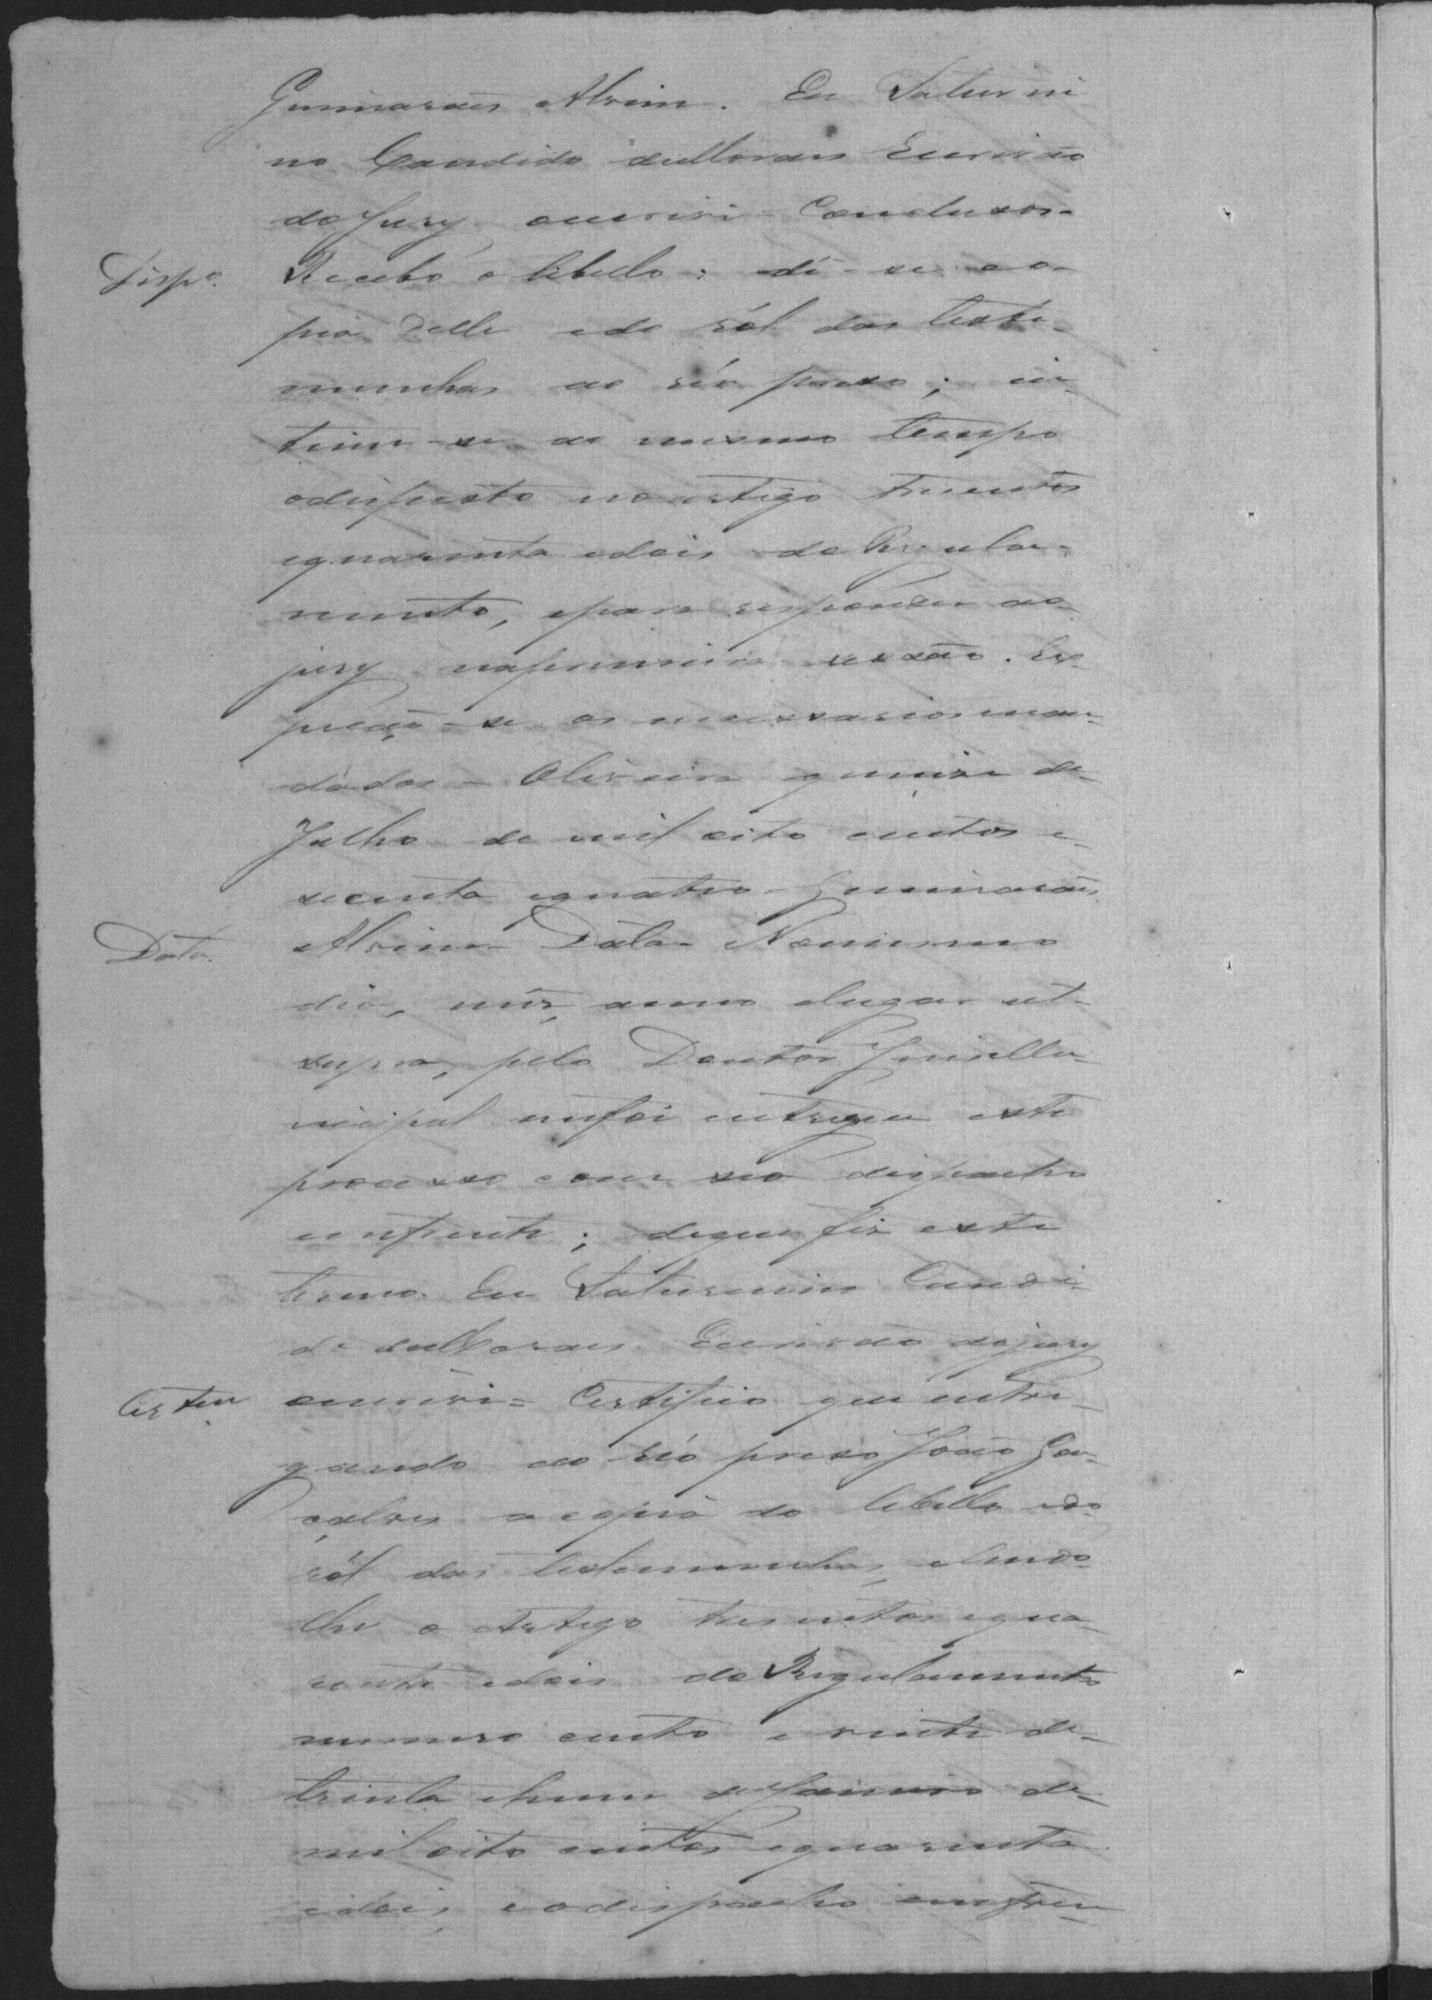 Guimarães Alvim. Eu Saturni
no Candido de Moraes Escrivão
do Jury escrivi = Concluzos =
Disp.º Recebo o libello: dê-se co-
pia delle e do ról das teste-
munhas ao réo preso; in-
time-se ao mesmo tempo
odisposto noartigo trezentos
equarenta edois do Regula-
mento, epara responder ao
jury naprimeira sessão. Ex-
peção-se os necessarios man-
dados = Oliveira quinze de
Julho de mil oito centos e
secenta equatro = Guimarães
Data. Alvim = Data = Nomesmo
dia, mês, anno elugar ut-
supra, pelo Doutor Juis Mu-
nicipal mefoi entregue este
processo com seo despacho
emfrente; deque fis este
termo. Eu Saturnino Candi-
do de Moraes Escrivão dojury
Certam escrivi = Certifico que entre-
gando ao réo preso João Gon-
çalves a copia do libello edo
ról das testemunhas, elendo-
lhe o Artigo trezentos equa-
renta edois do Regulamento
numero cento e vinte de
trinta ehum de Janeiro de
mil oito centos equarenta
edois, eodespacho emfren-